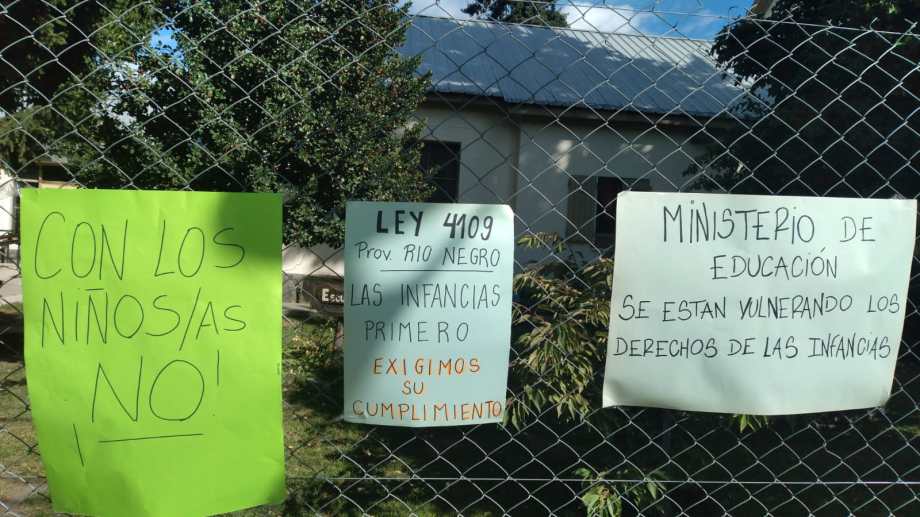 CON LOS
NIÑOS/AS
¡NO!
LEY 4109
Prov. RIO NEGRO
LAS INFANCIAS
PRIMERO
EXIGIMOS
SU
CUMPLIMIENTO
MINISTERIO DE
EDUCACIÓN
SE ESTAN VULNERANDO LOS
DERECHOS DE LAS INFANCIAS